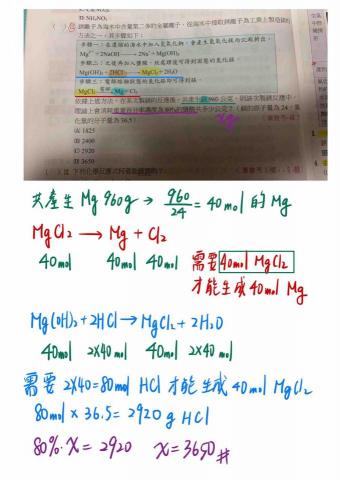 (D) NH₄NO₃
鎂離子為海水中含量第二多的金屬離子,從海水中提取鎂離子為工業上製造鎂的
方法之一,其步驟如下:
步驟一:在濃縮的海水中加入氫氧化鈉,會產生氫氧化鎂的沉澱析出。
Mg²⁺ + 2NaOH → 2Na⁺ + Mg(OH)₂
步驟二:
Mg(OH)₂ + 2HCl → MgCl₂ + 2H₂O
步驟三:
MgCl₂ 電解 Mg + Cl₂
依據上述方法,在某次製鎂的反應後,共產生鎂 960 公克,則該次製鎂反應中,
用鎂的原子量為 24,氯
化氫的分子量為 36.5)
xg
(A) 1825
(B) 2400
(C) 2920
(D) 3650
共產生 Mg 960g → 960/24 = 40 mol 的 Mg
MgCl₂ → Mg + Cl₂
40mol 40mol 40mol 需要 40mol MgCl₂
才能生成 40mol Mg
Mg(OH)₂ + 2HCl → MgCl₂ + 2H₂O
40mol 2×40mol 40mol 2×40mol
需要 2×40 = 80mol HCl 才能生成 40mol MgCl₂
80mol × 36.5 = 2920g HCl
80%·x = 2920 x = 3650 #